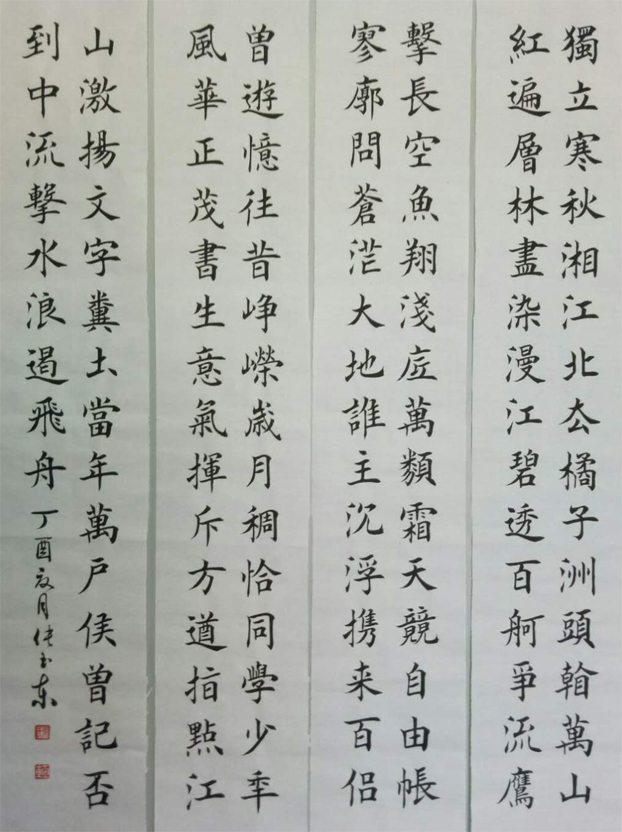 獨立寒秋湘江北去橘子洲頭看萬山
紅遍層林盡染漫江碧透百舸爭流鷹
擊長空魚翔淺底萬類霜天競自由帳
寥廓問蒼茫大地誰主沉浮携来百侣
曾遊憶往昔崢嶸歲月稠恰同學少年
風華正茂書生意氣揮斥方遒指點江
山激揚文字糞土當年萬戶侯曾記否
到中流擊水浪遏飛舟丁酉夏月